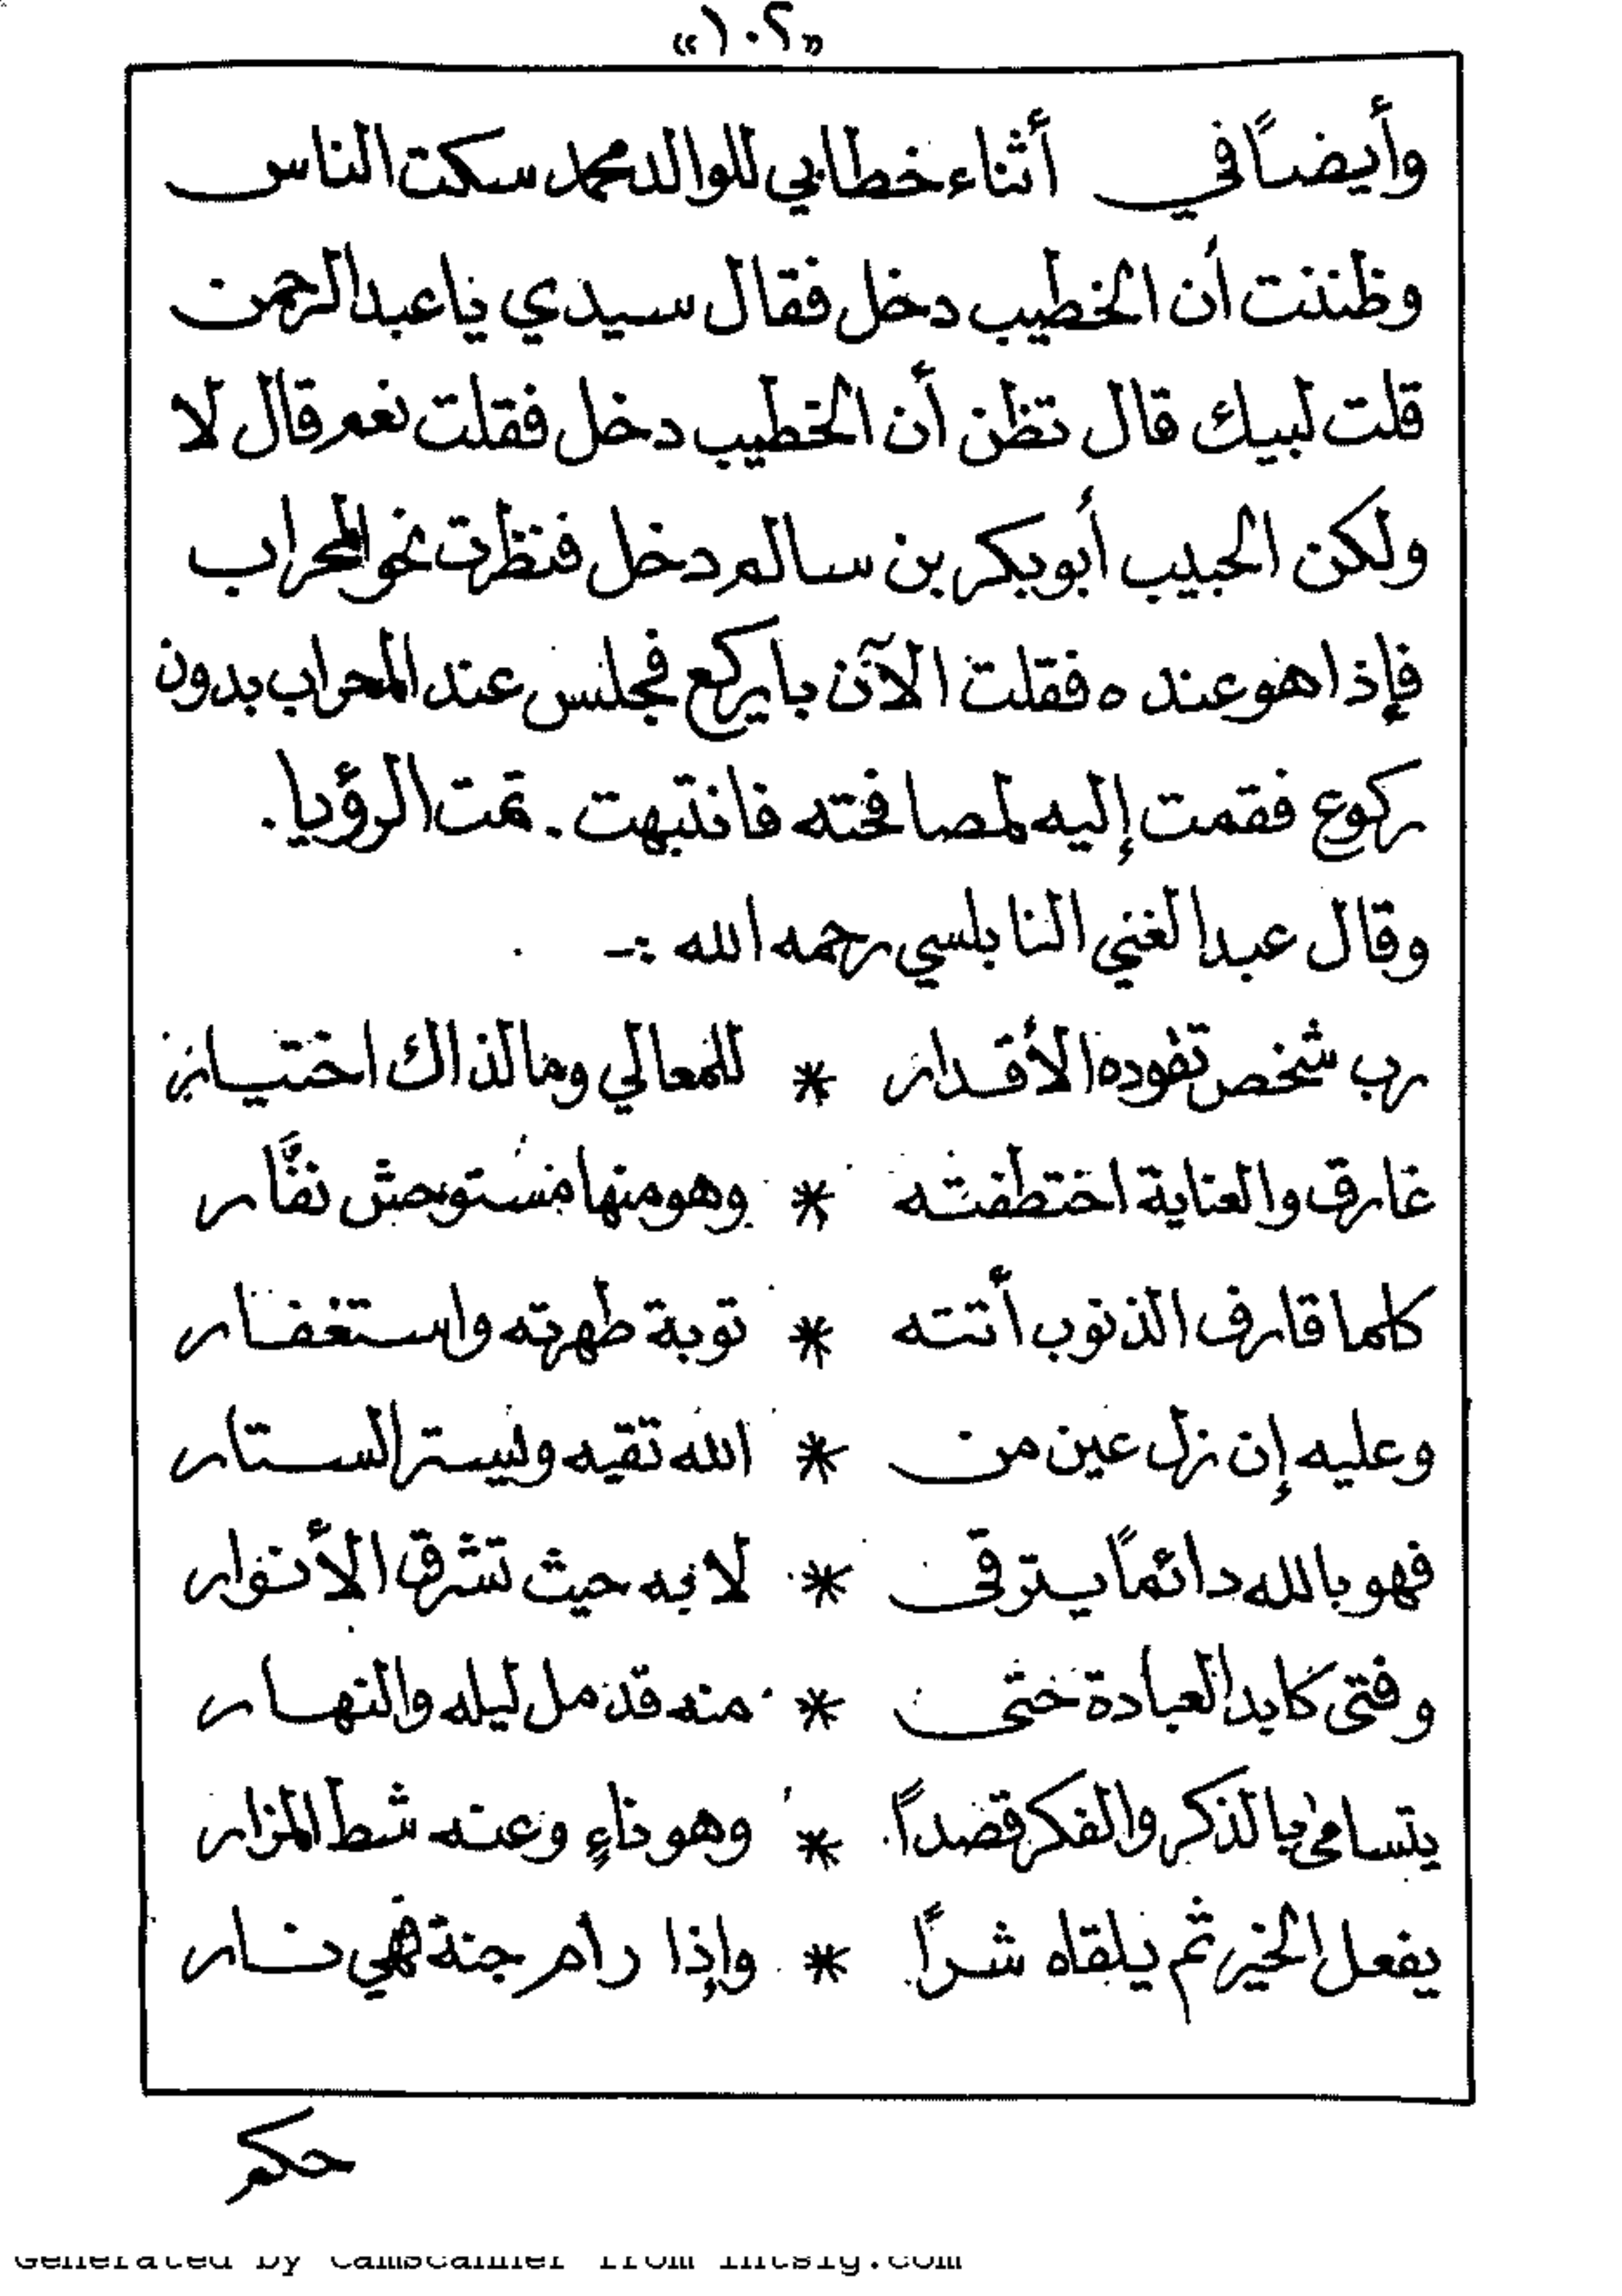 «١٠٢»
وأيضاً في أثناء خطابي للوالد محمد سكت الناس
وظننت أن الخطيب دخل فقال سيدي يا عبدالرحمن
قلت لبيك قال تظن أن الخطيب دخل فقلت نعم قال لا
ولكن الحبيب أبوبكر بن سالم دخل فنظرت نحو المحراب
فإذا هو عنده فقلت الآن بايركع فجلس عند المحراب بدون
ركوع فقمت إليه لمصافحته فانتبهت . تمت الرؤيا .
وقال عبد الغني النابلسي رحمه الله :-
رب شخص تقوده الأقدار * للمعالي وما لذاك اختيار
غارق والعناية اختطفته * وهو منها مستوحش نفَّار
كلما قارف الذنوب أتته * توبة طهرته واستغفار
وعليه إن زل عين من * الله تقيه ويستر الستار
فهو بالله دائماً يترقى * لا به حيث تشرق الأنوار
وفتى كابد العبادة حتى * منه قد مل ليله والنهار
يتسامى بالذكر والفكر قصداً * وهو ناءٍ وعنه شط المزار
يفعل الخير ثم يلقاه شراً * وإذا رام جنة فهي نار
حكم
Generated by CamScanner from intsig.com